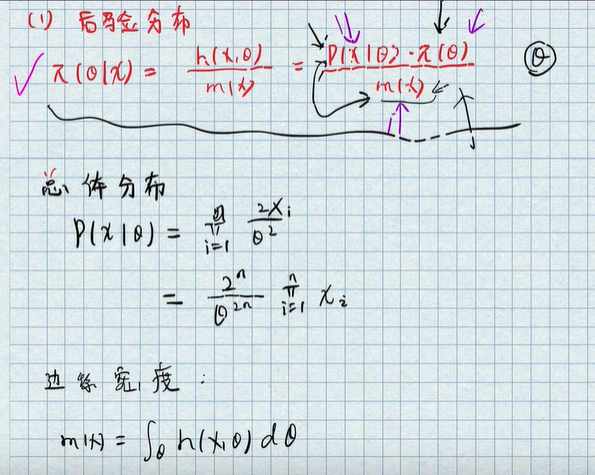 (1) 后验分布
π(θ|x) = h(x,θ) / m(x) = p(x|θ)·π(θ) / m(x) θ
总体分布
P(x|θ) = ∏_{i=1}^{n} 2x_i / θ^2
= 2^n / θ^{2n} ∏_{i=1}^{n} x_i
边缘宽度:
m(x) = ∫_θ h(x,θ) dθ